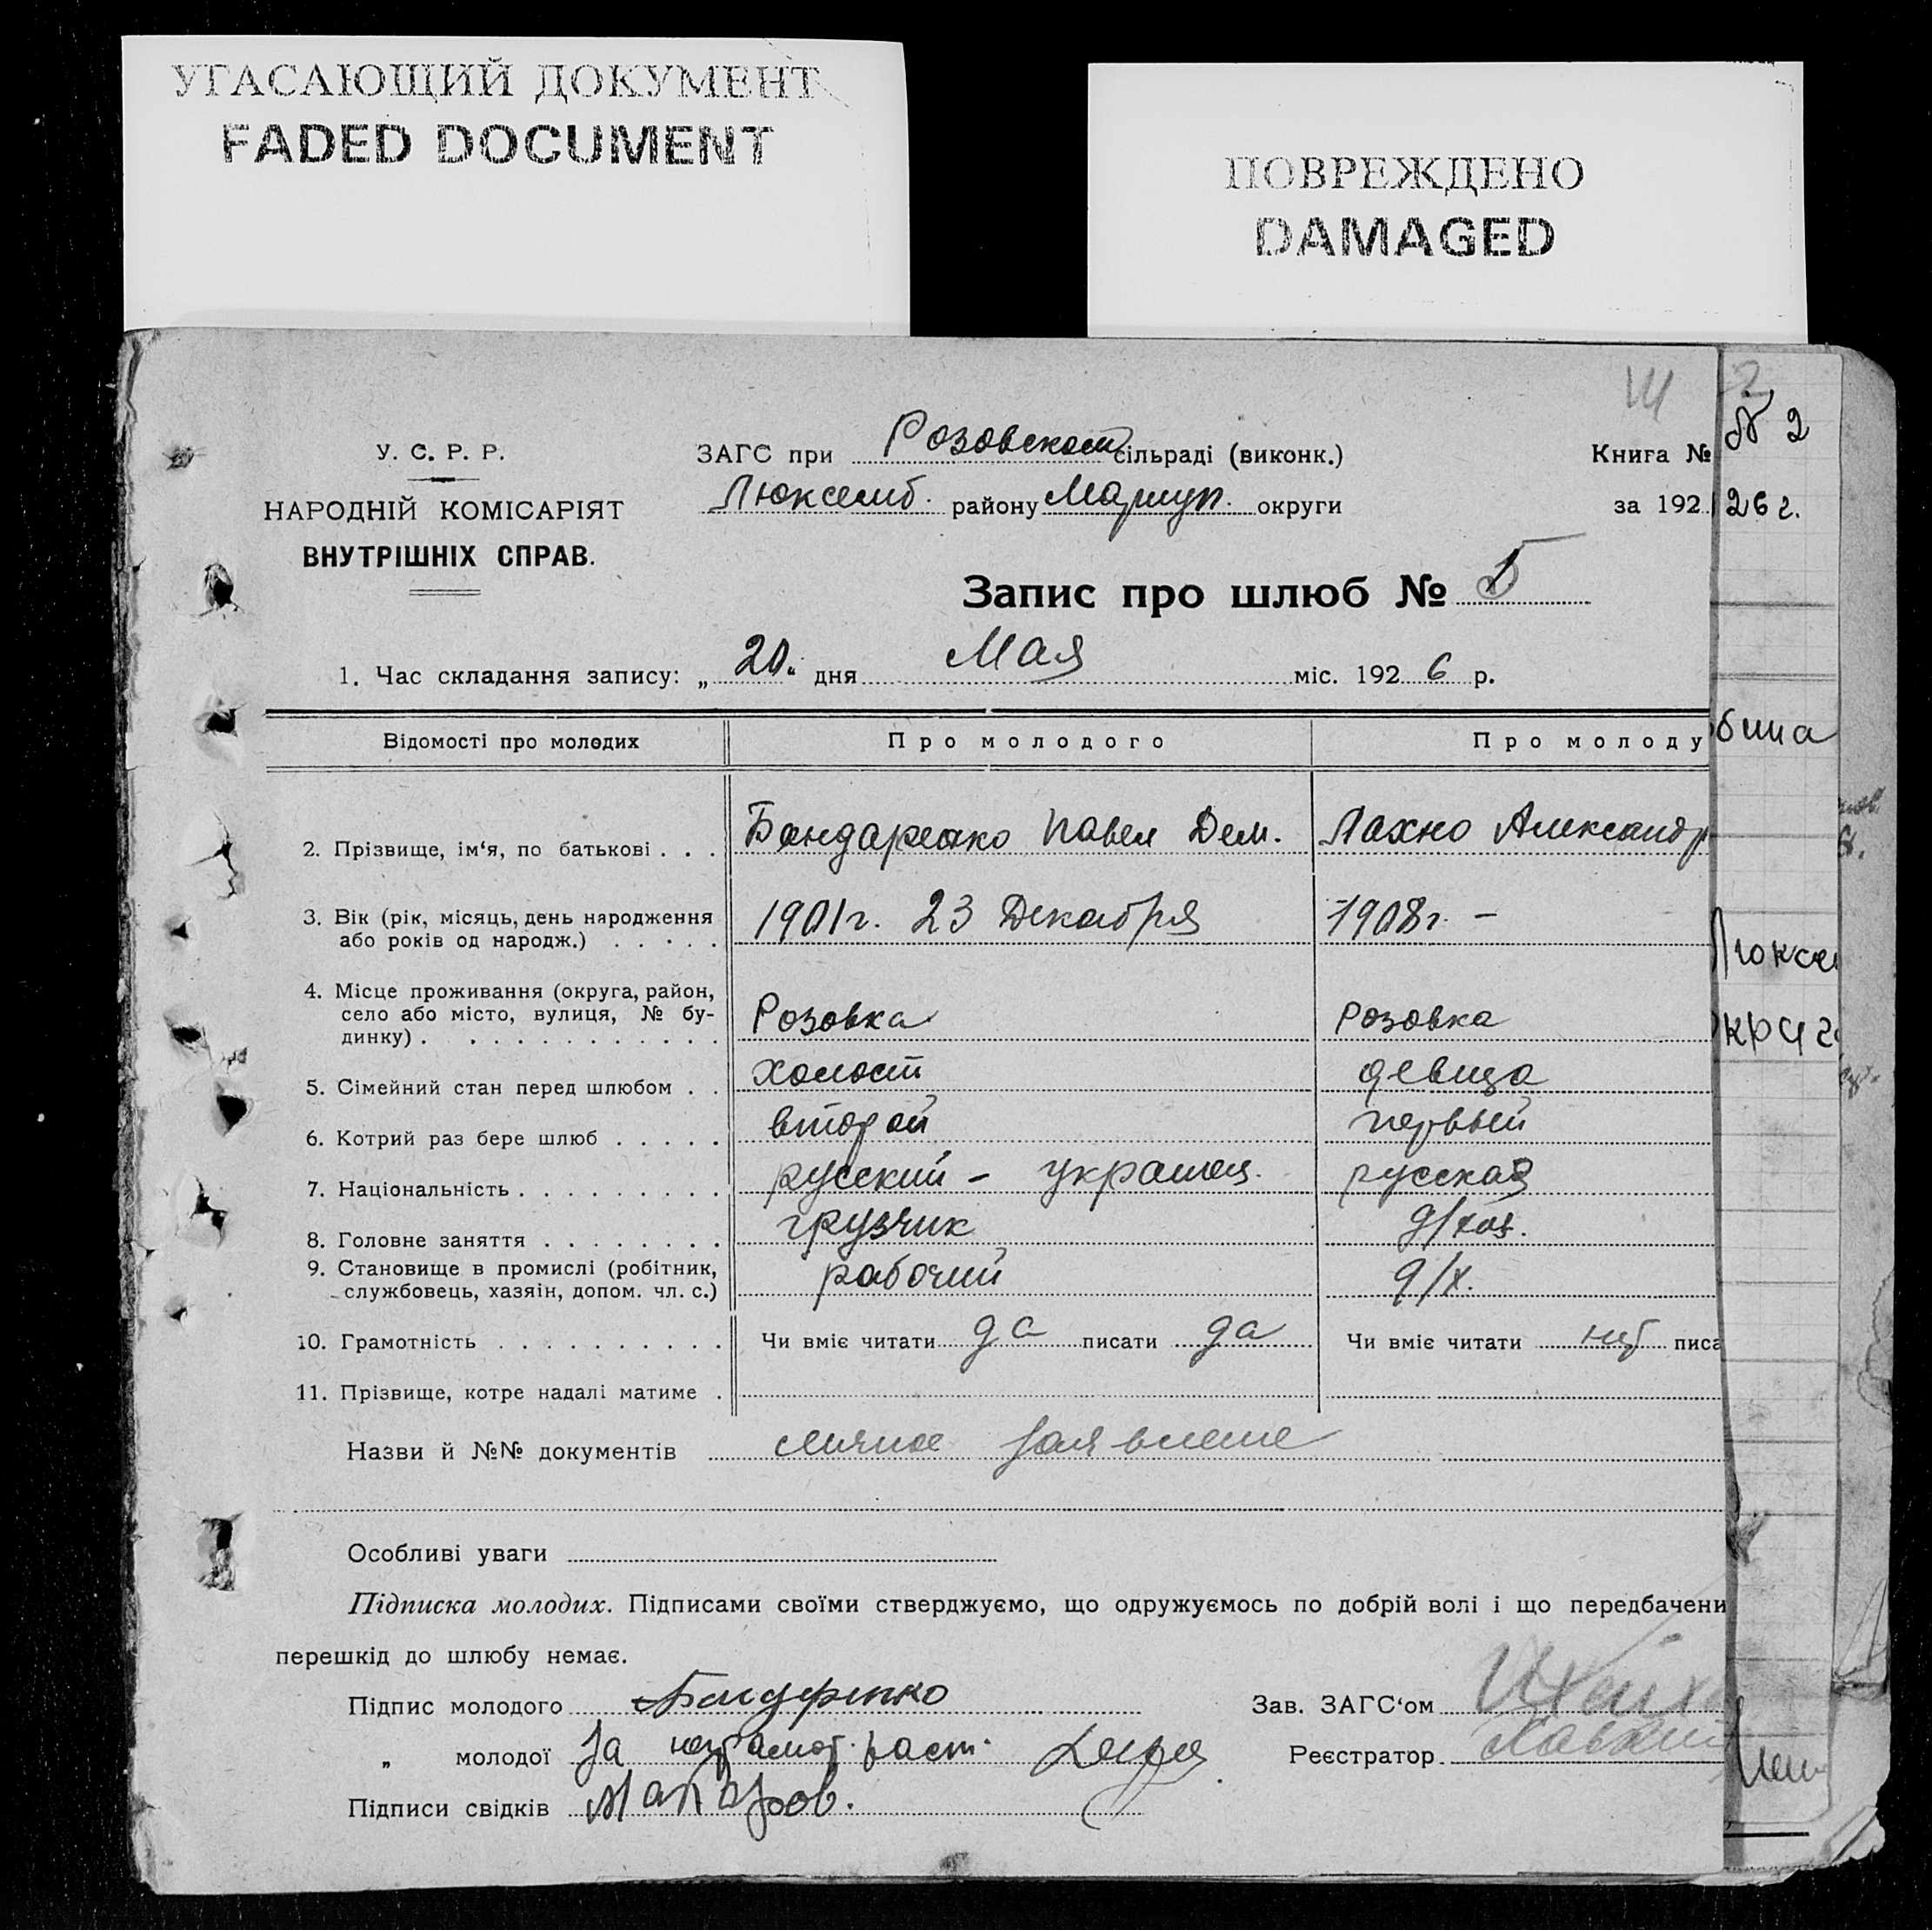 УГАСАЮЩИЙ ДОКУМЕНТ
FADED DOCUMENT
ПОВРЕЖДЕНО
DAMAGED
У. С. Р. Р.
НАРОДНІЙ КОМІСАРІЯТ
ВНУТРІШНІХ СПРАВ.
ЗАГС при Розовском сільраді (виконк.)
Люксемб. району Мариуп. округи
Книга № № 2
за 192 26 г.
Запис про шлюб № 5
1. Час складання запису: „ 20 " дня Мая міс. 192 6 р.
Відомості про молодих Про молодого Про молоду
2. Прізвище, ім'я, по батькові . . . Бондаренко Павел Дем. Лахно Александр
3. Вік (рік, місяць, день народження
або років од народж.) . . . . . 1901г. 23 Декабря 1908г. -
4. Місце проживання (округа, район,
село або місто, вулиця, № бу-
динку) . . . . . . . . . . . . Розовка Розовка
5. Сімейний стан перед шлюбом . . холост девица
6. Котрий раз бере шлюб . . . . . второй первый
7. Національність . . . . . . . . . русский - украинец. русская
8. Головне заняття . . . . . . . . грузчик д/хоз.
9. Становище в промислі (робітник,
службовець, хазяін, допом. чл. с.) рабочий д/х.
10. Грамотність . . . . . . . . . . Чи вміє читати да писати да Чи вміє читати нет писа
11. Прізвище, котре надалі матиме .
Назви й №№ документів личное заявление
Особливі уваги
Підписка молодих. Підписами своїми стверджуємо, що одружуємось по добрій волі і що передбачени
перешкід до шлюбу немає.
Підпис молодого Бандаренко
Зав. ЗАГС'ом
„ молодої За неграмот. расп.
Реєстратор
Підписи свідків
бина
Люксе